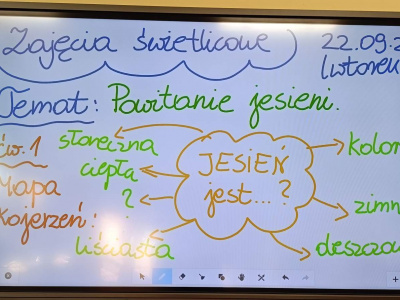 Zajęcia świetlicowe
22.09.2
Wtorek
Temat: Powitanie jesieni.
ćw. 1
Mapa
kojerzeń:
JESIEŃ
jest...?
słoneczna
ciepła
?
liściasta
kolor
zimn
deszczow